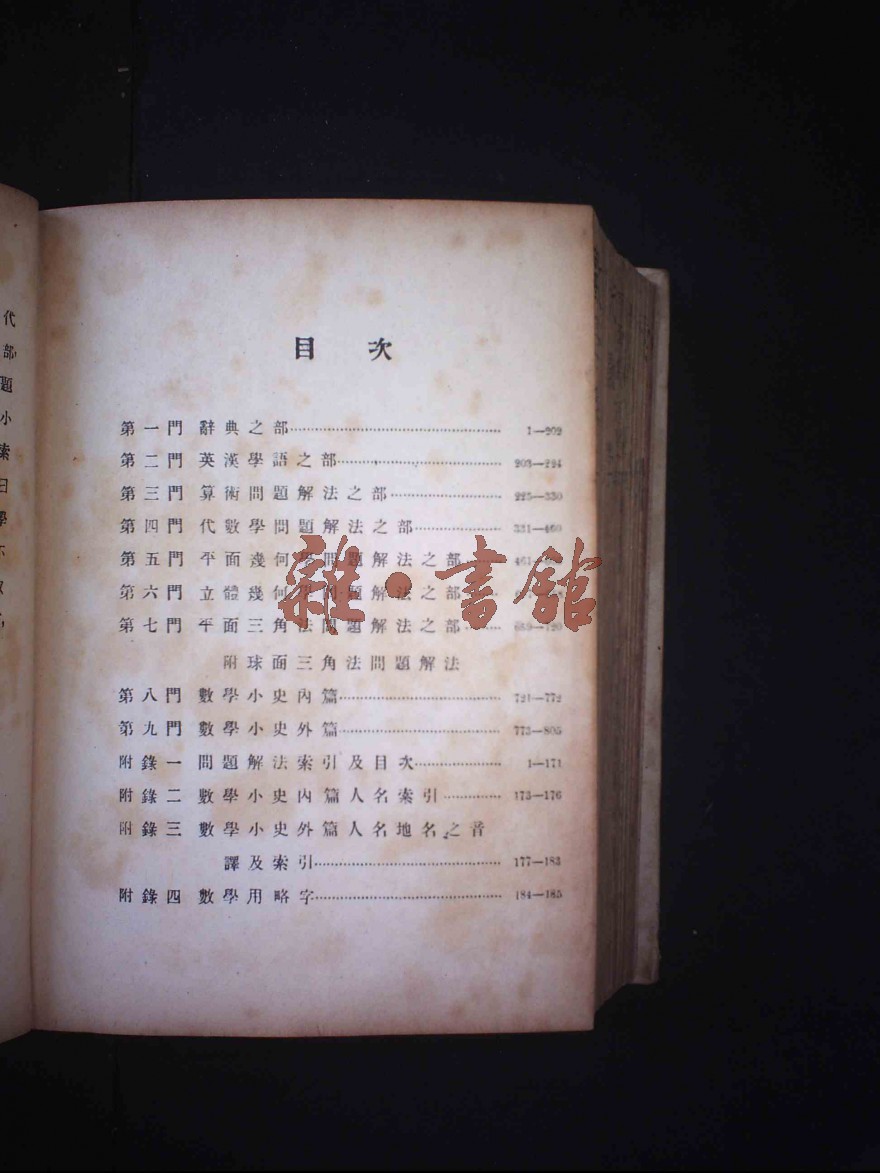 目次
第一門 辭典之部 1—202
第二門 英漢學語之部 203—224
第三門 算術問題解法之部 225—330
第四門 代數學問題解法之部 331—460
第五門 平面幾何學問題解法之部
第六門 立體幾何學問題解法之部
第七門 平面三角法問題解法之部 689—720
附球面三角法問題解法
第八門 數學小史內篇 721—772
第九門 數學小史外篇 773—805
附錄一 問題解法索引及目次 1—171
附錄二 數學小史內篇人名索引 173—176
附錄三 數學小史外篇人名地名之音
譯及索引 177—183
附錄四 數學用略字 184—185
雜·書館
代
部
題
小
索
曰
學